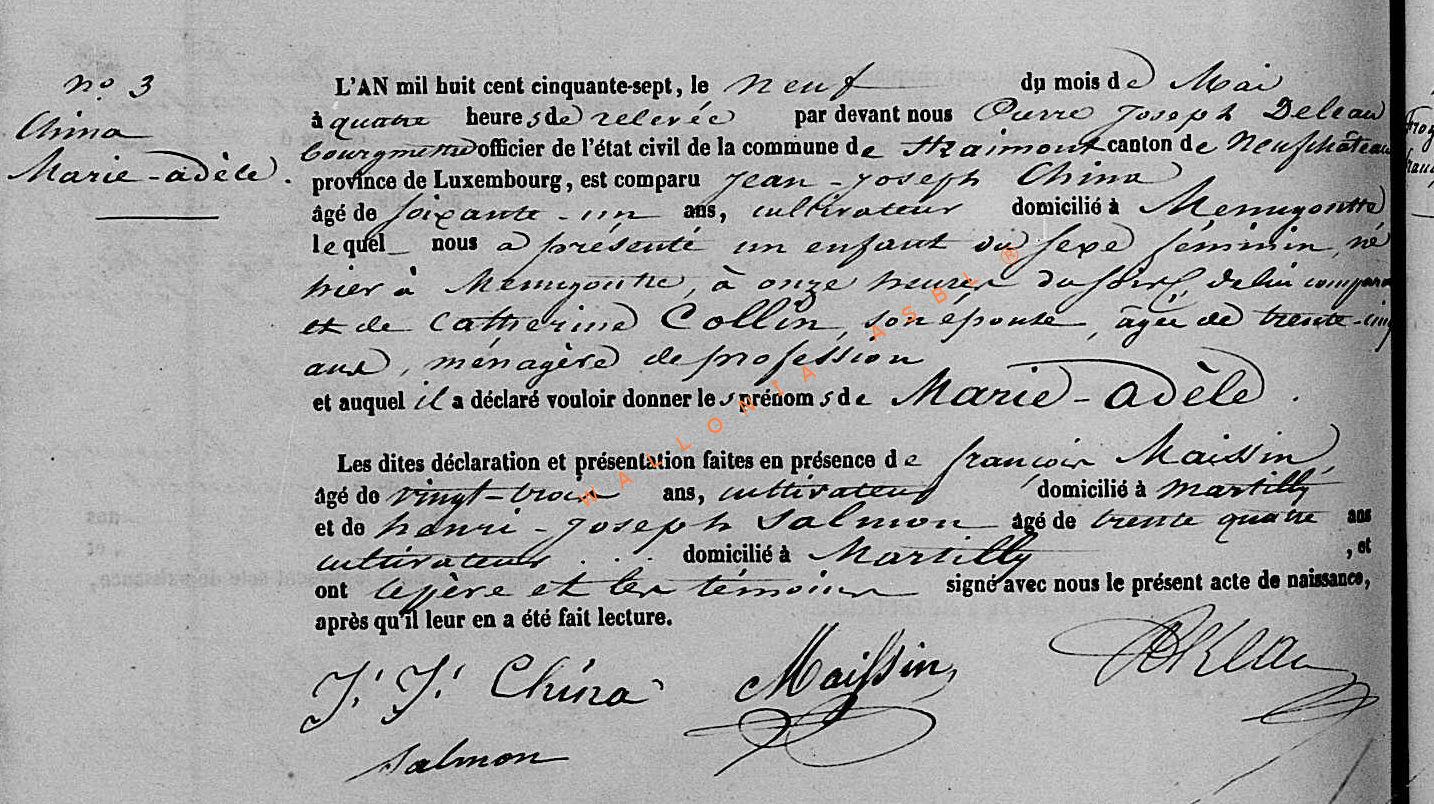 no. 3
China
Marie-adèle.
L'AN mil huit cent cinquante-sept, le neuf du mois de Mai
à quatre heures de relevée par devant nous Pierre Joseph Deleau
bourgmestre officier de l'état civil de la commune de Straimont canton de Neufchâteau
province de Luxembourg, est comparu Jean-Joseph China
âgé de soixante-un ans, cultivateur domicilié à Menugoutte
lequel nous a présenté un enfant du sexe féminin, né
hier à Menugoutte, à onze heures du soir, de lui comparant
et de Catherine Collin, son épouse, âgée de trente-cinq
ans, ménagère de profession
et auquel il a déclaré vouloir donner les prénoms de Marie-Adèle.
Les dites déclaration et présentation faites en présence de françois Maissin
âgé de vingt-trois ans, cultivateur domicilié à Martilly
et de henri-Joseph Salmon âgé de trente quatre ans
cultivateur . . . domicilié à Martilly , et
ont le père et les témoins signé avec nous le présent acte de naissance,
après qu'il leur en a été fait lecture.
J. J. China Maissin Deleau
Salmon
WALLONIA ASBL ®